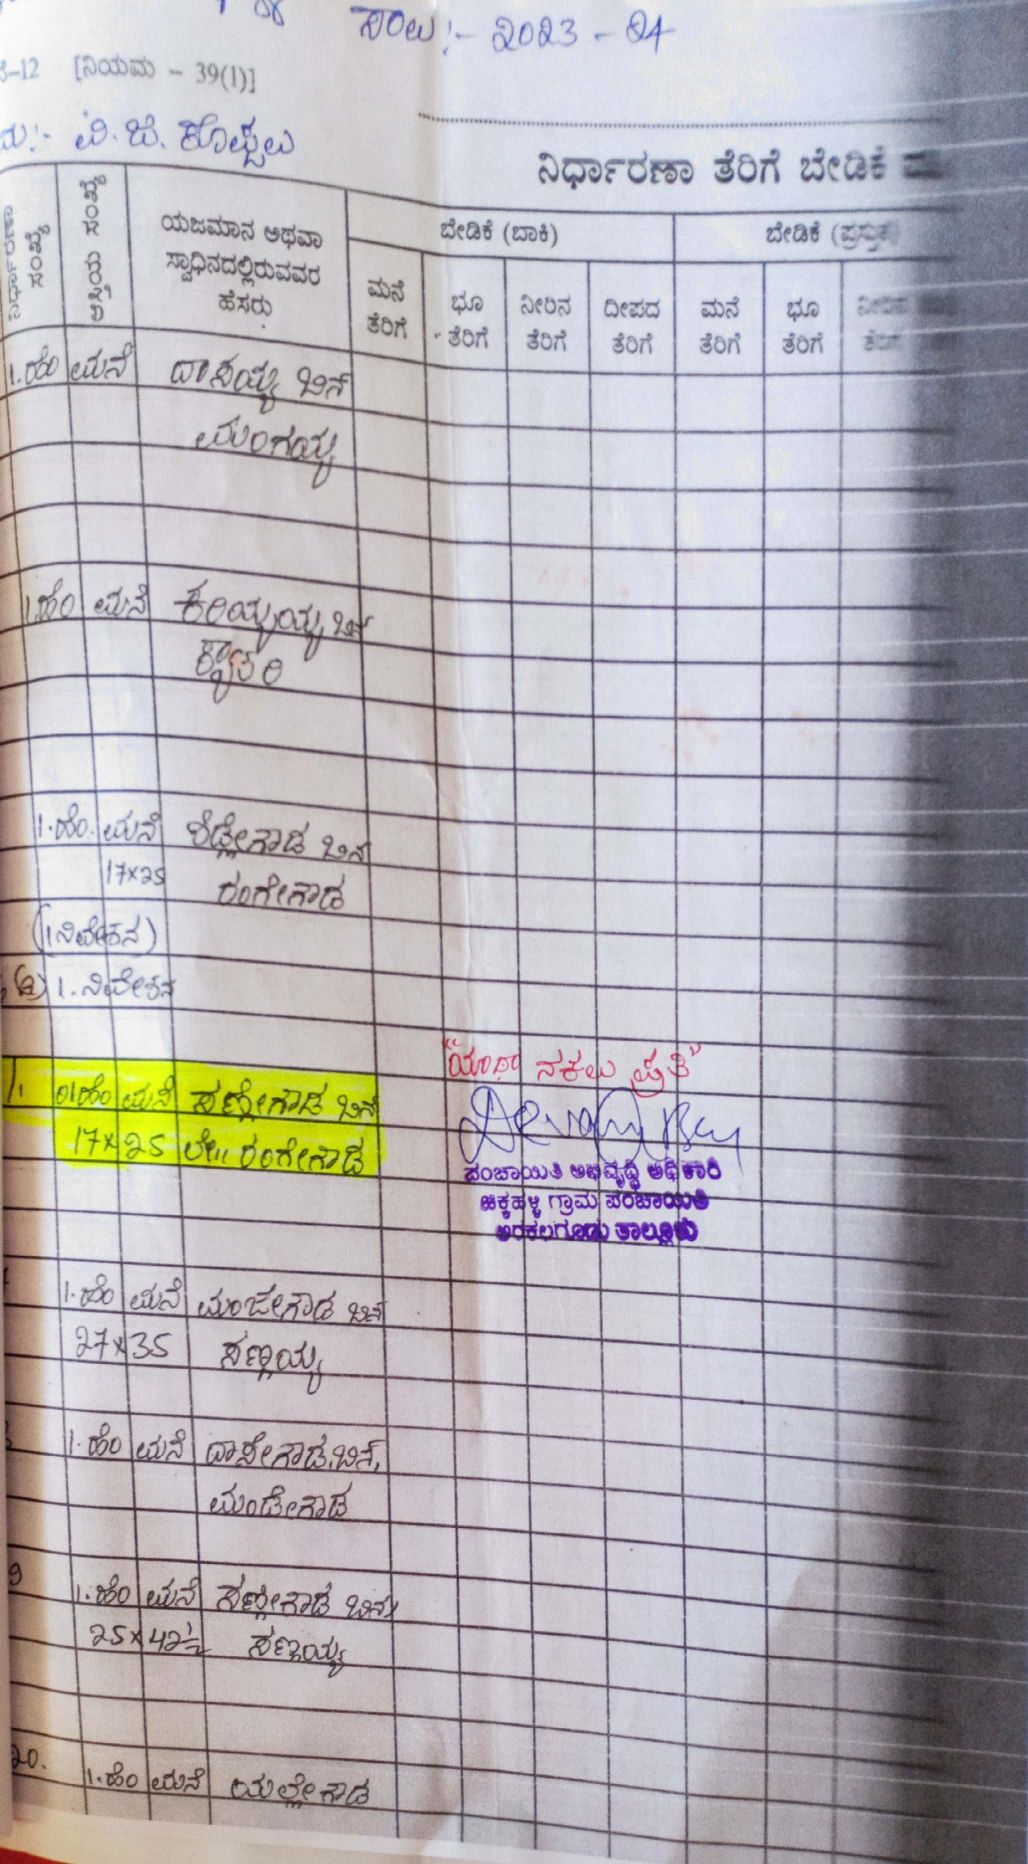 ಸಾಲು:- 2023 - 24
-12 [ನಿಯಮ - 39(1)]
ವಿ. ಜಿ. ಕೊಪ್ಪಲು
ನಿರ್ಧಾರಣಾ ತೆರಿಗೆ ಬೇಡಿಕೆ
ನಿರ್ಧಾರಣಾ ಸಂಖ್ಯೆ
ಆಸ್ತಿಯ ಸಂಖ್ಯೆ
ಯಜಮಾನ ಅಥವಾ
ಸ್ವಾಧಿನದಲ್ಲಿರುವವರ
ಹೆಸರು
ಬೇಡಿಕೆ (ಬಾಕಿ)
ಬೇಡಿಕೆ (ಪ್ರಸ್ತುತ)
ಮನೆ ತೆರಿಗೆ
ಭೂ ತೆರಿಗೆ
ನೀರಿನ ತೆರಿಗೆ
ದೀಪದ ತೆರಿಗೆ
ಮನೆ ತೆರಿಗೆ
ಭೂ ತೆರಿಗೆ
1.ಹೆಂ ಮನೆ ದಾಸಯ್ಯ ಬಿನ್
ಮಂಗಯ್ಯ
1.ಹೆಂ ಮನೆ ಕರಿಯ್ಯಯ್ಯ ಬಿನ್
1.ಹೆಂ. ಮನೆ ಶೆಟ್ಟೇಗೌಡ ಬಿನ್
17x25 ರಂಗೇಗೌಡ
(1ನಿವೇಶನ)
1. ನಿವೇಶನ
01ಹೆಂ ಮನೆ ಸಣ್ಣೇಗೌಡ ಬಿನ್
17x25 ಲೇ॥ ರಂಗೇಗೌಡ
"ಯಥಾ ನಕಲು ಪ್ರತಿ"
ಪಂಚಾಯಿತಿ ಅಭಿವೃದ್ಧಿ ಅಧಿಕಾರಿ
ಚಿಕ್ಕಹಳ್ಳಿ ಗ್ರಾಮ ಪಂಚಾಯಿತಿ
ಅರಕಲಗೂಡು ತಾಲ್ಲೂಕು
1.ಹೆಂ ಮನೆ ಮಂಜೇಗೌಡ ಬಿನ್
27x35 ಸಣ್ಣಯ್ಯ
1.ಹೆಂ ಮನೆ ದಾಸೇಗೌಡ ಬಿನ್,
ಮಂಡೇಗೌಡ
9 1.ಹೆಂ ಮನೆ ಸಣ್ಣೇಗೌಡ ಬಿನ್
25x42½ ಸಣ್ಣಯ್ಯ
20. 1.ಹೆಂ ಮನೆ ಯಲ್ಲೇಗೌಡ